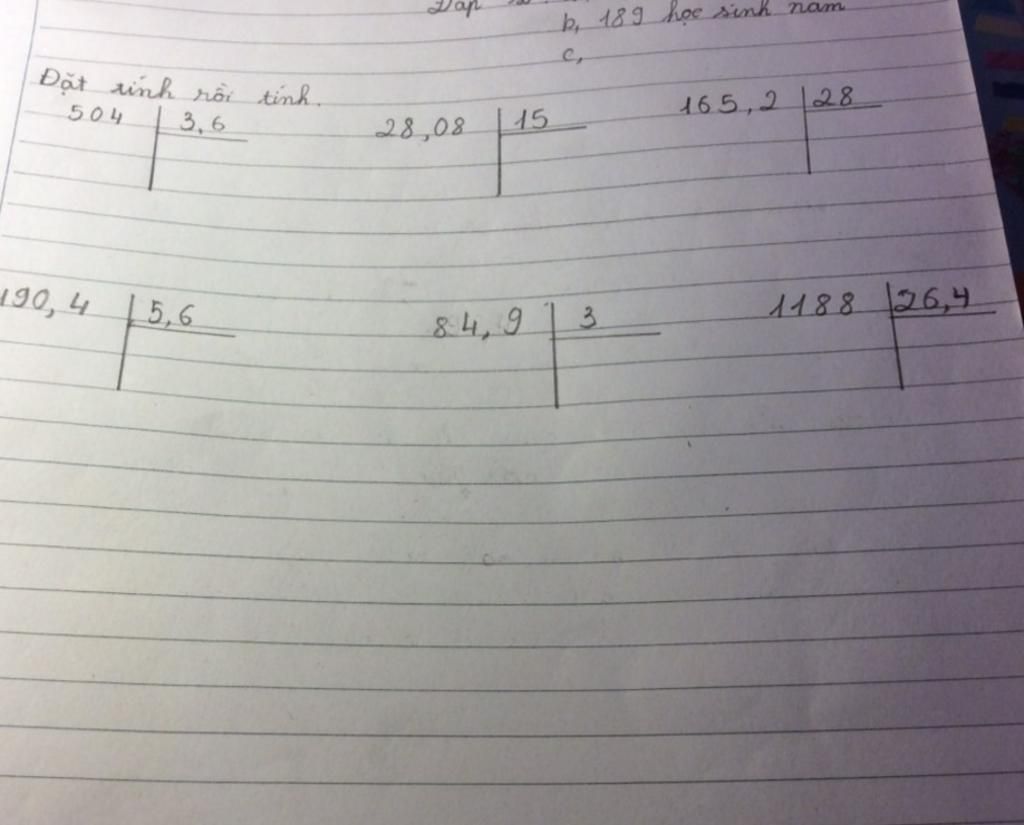 Đáp
b, 189 học sinh nam
c,
Đặt tính rồi tính.
504 3,6 28,08 15 165,2 28
190,4 5,6 84,9 3 1188 26,4